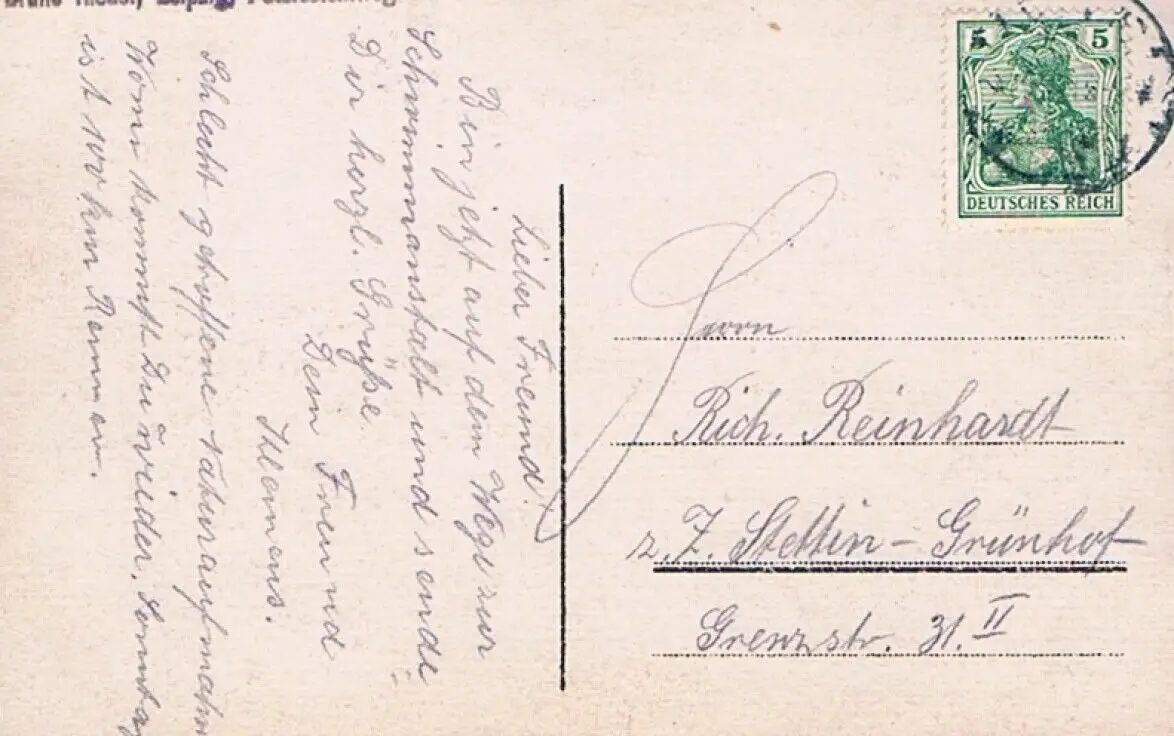 Leipzig
Lieber Freund!
Bin jetzt auf dem Wege zur
Schwimmanstalt und sende
Dir herzl. Grüße
Dein Freund
Klemens.
Schlecht getroffene
Wann kommst Du wieder. Sonntag
ist 100 km Rennen.
5 5
DEUTSCHES REICH
Herrn
Rich. Reinhardt
z. Z. Stettin - Grünhof
Grenzstr. 31. II